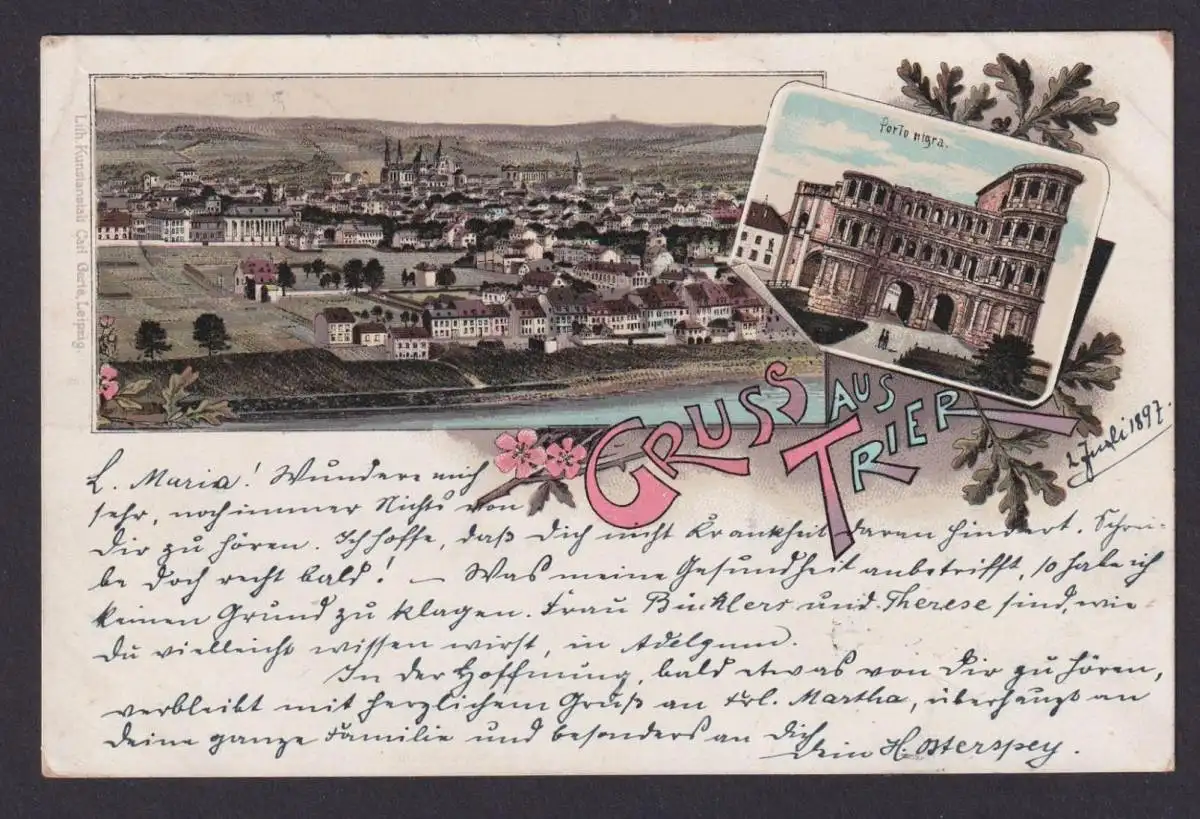 Lith. Kunstanstalt Carl Garte, Leipzig.
Porto nigra.
GRUSS AUS
TRIER
2 Juli 1897.
L. Maria! Wundere mich
sehr, noch immer Nichts von
Dir zu hören. Ich hoffe, daß Dich nicht Krankheit daran hindert. Schrei-
be doch recht bald! – Was meine Gesundheit anbetrifft, so habe ich
keinen Grund zu klagen. Frau Bücklers und Therese sind, wie
Du vielleicht wissen wirst, in
In der Hoffnung, bald etwas von Dir zu hören,
verbleibt mit herzlichem Gruß an Frl. Martha, überhaupt an
Deine ganze Familie und besonders an Dich
Dein H. Osterspey.